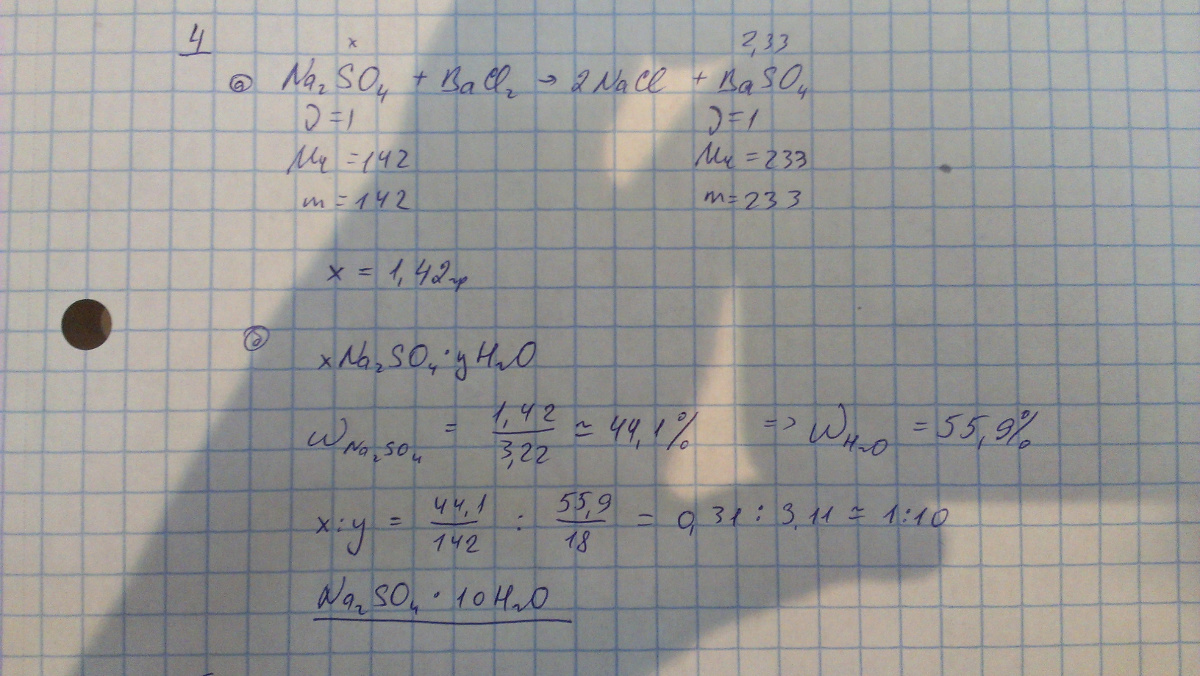 4
x 2,33
а Na₂SO₄ + BaCl₂ → 2NaCl + BaSO₄
ν=1 ν=1
Mч =142 Mч =233
m=142 m=233
x = 1,42гр
б
xNa₂SO₄·yH₂O
W Na₂SO₄ = 1,42/3,22 ≃ 44,1% => W H₂O = 55,9%
x:y = 44,1/142 : 55,9/18 = 0,31 : 3,11 ≃ 1:10
Na₂SO₄ · 10H₂O